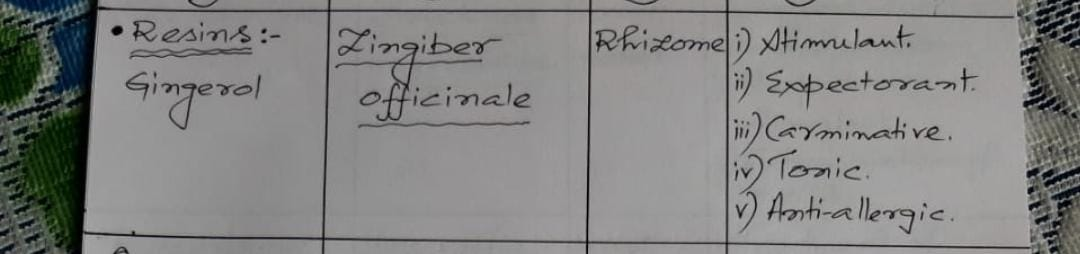 • Resins :-
Gingerol
Zingiber
officinale
Rhizome
i) Stimulant.
ii) Expectorant.
iii) Carminative.
iv) Tonic.
v) Anti-allergic.